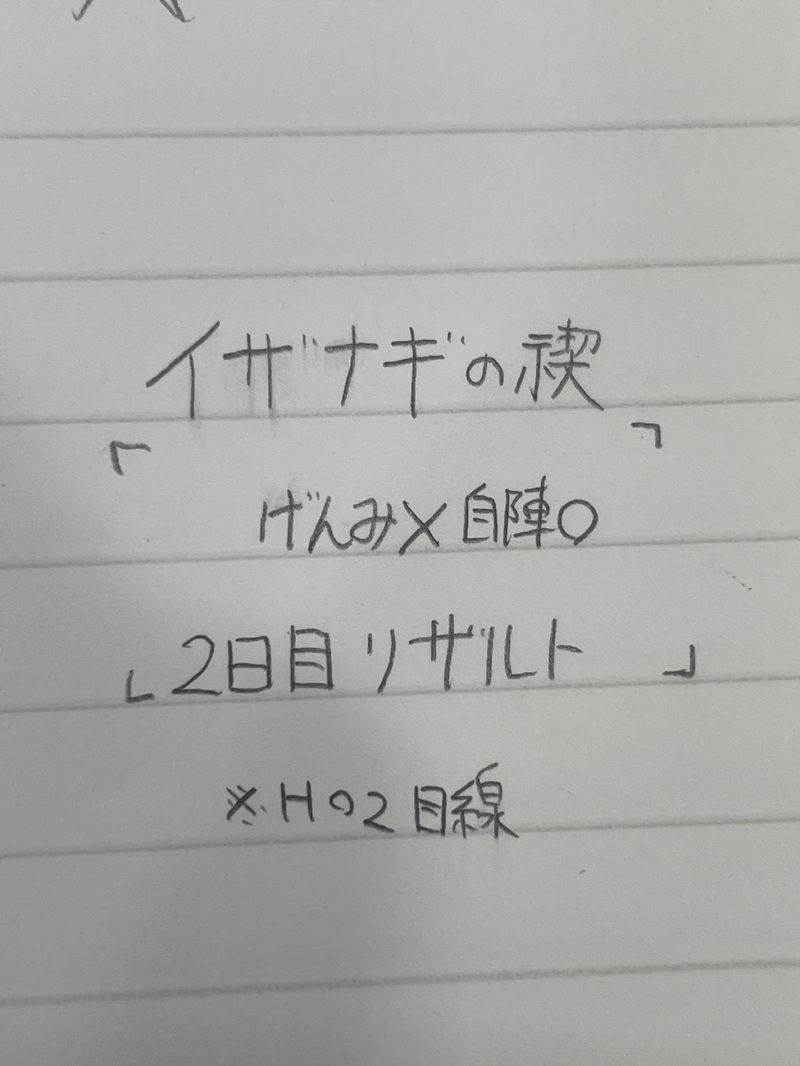 イザナギの禊
「 」
げんみ×自陣○
「2日目リザルト 」
※HO2目線